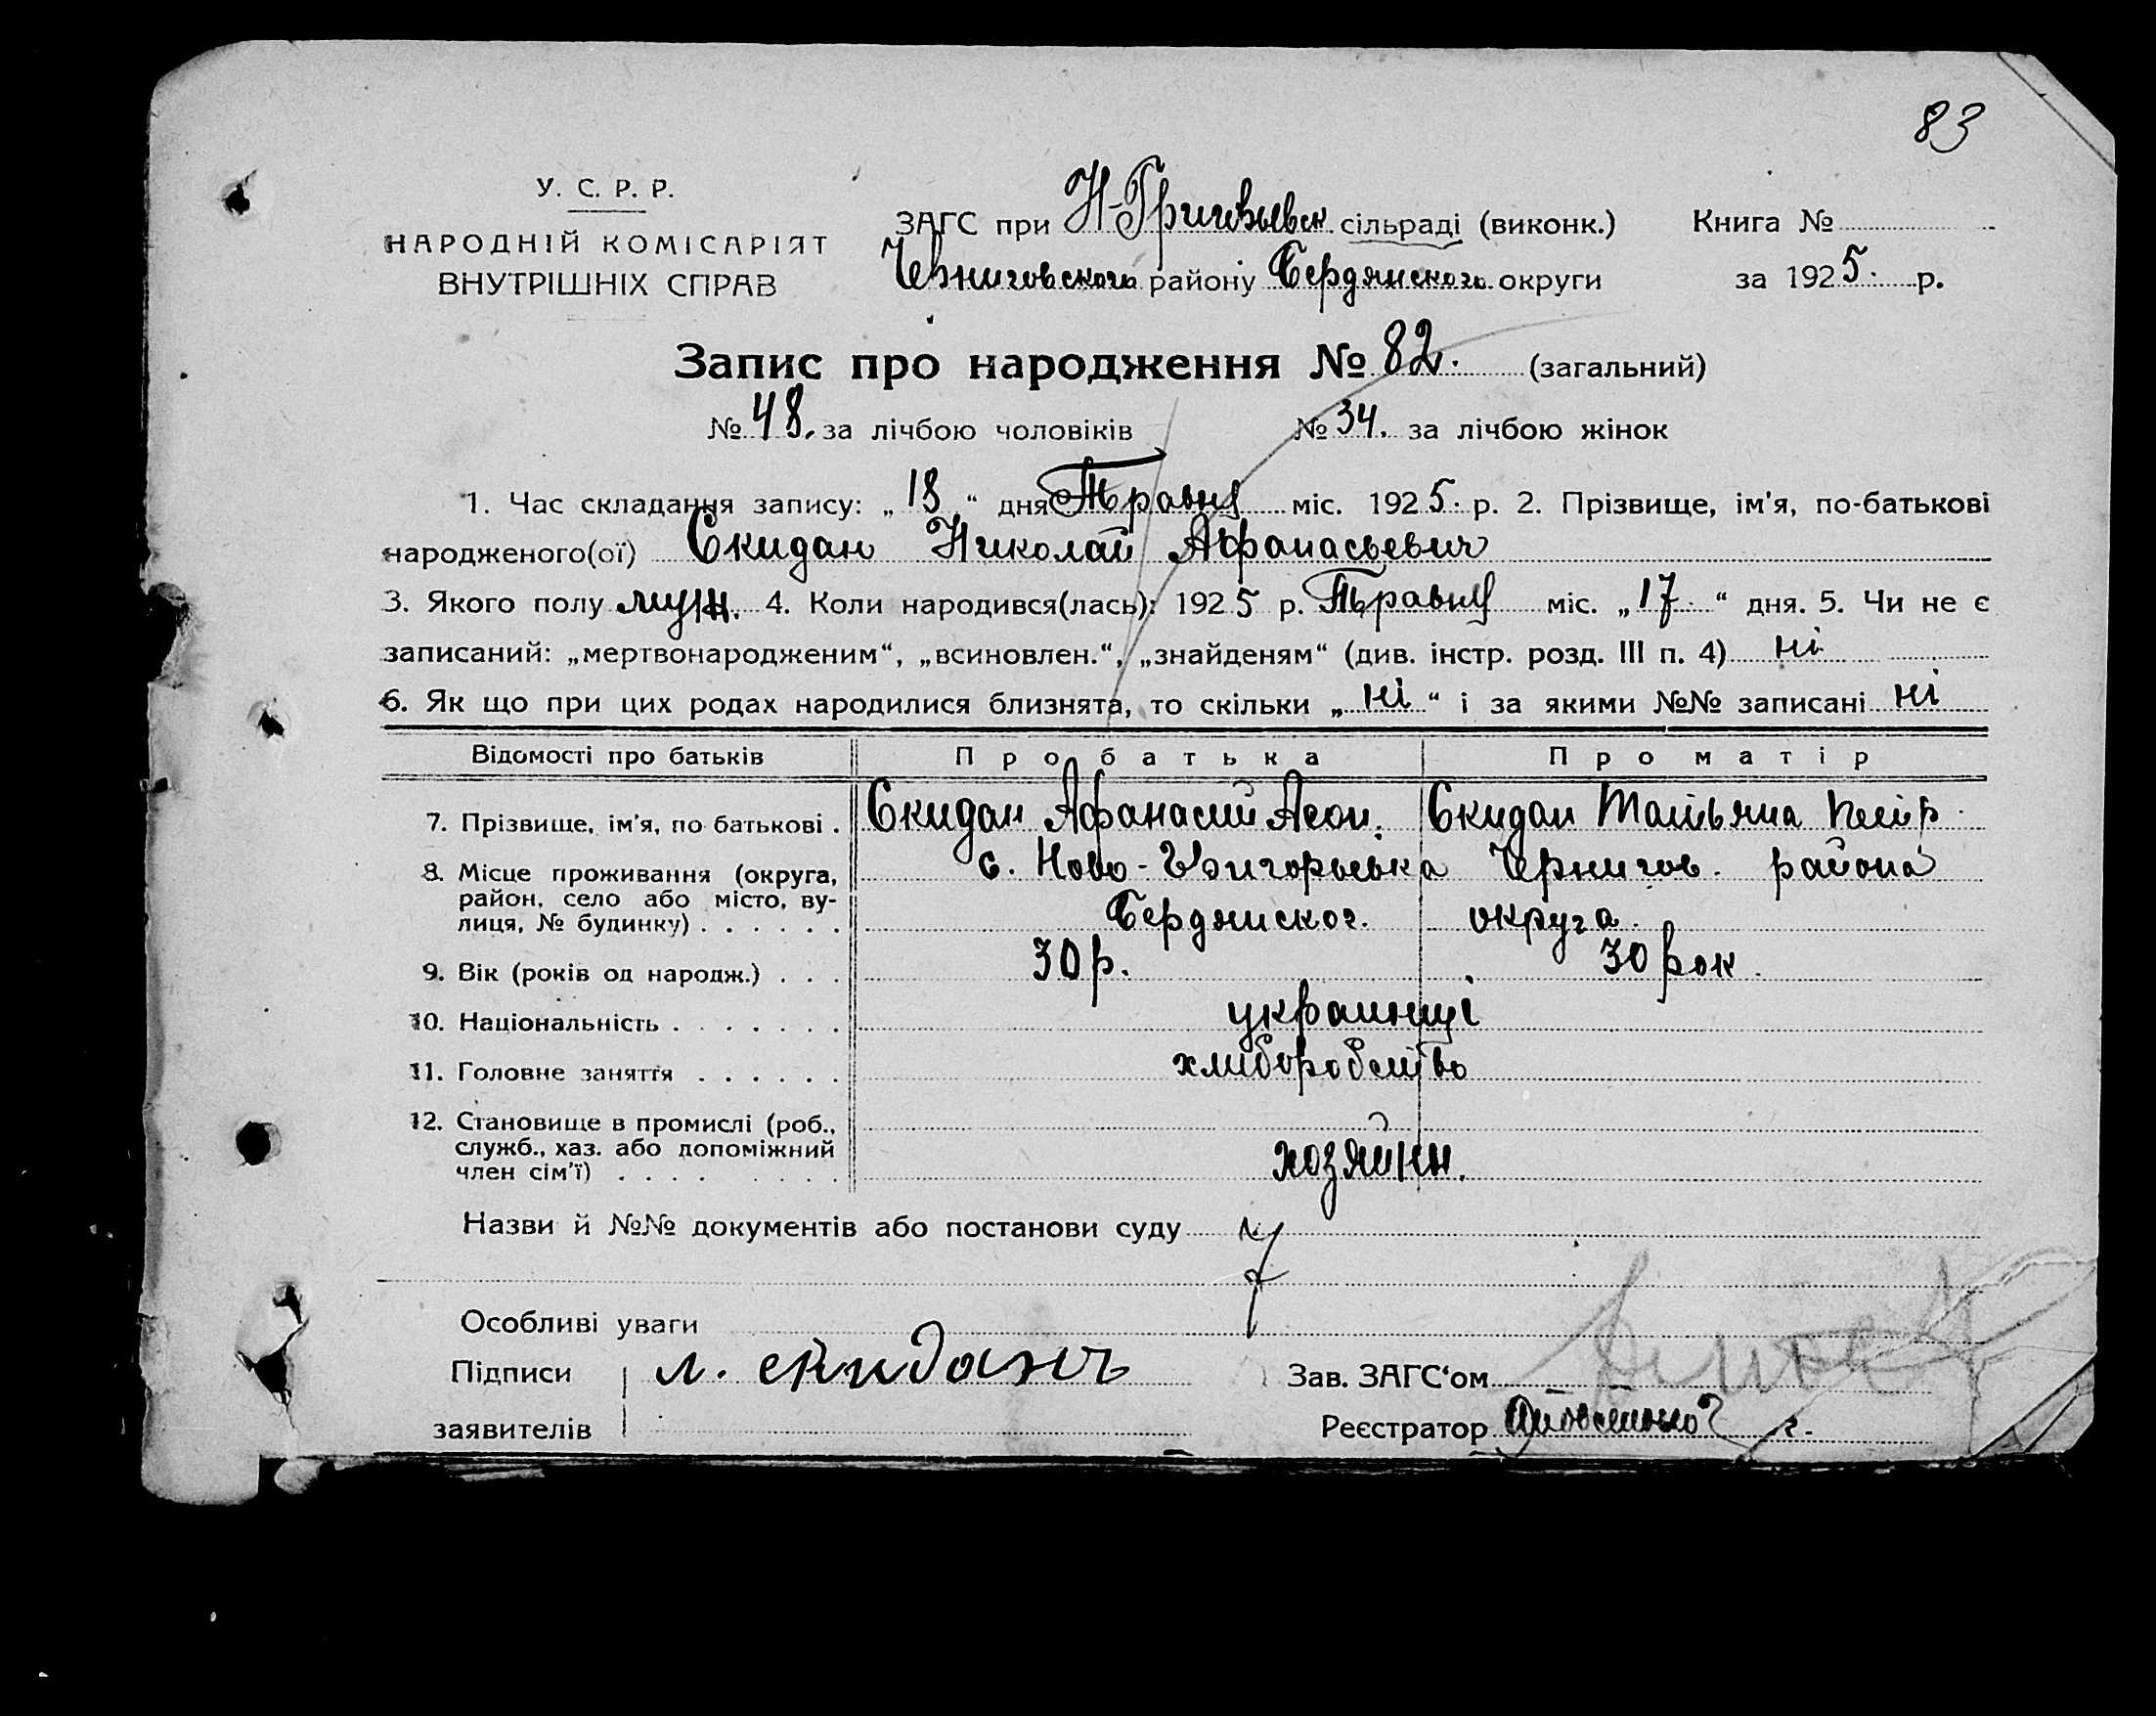 83
У. С. Р. Р.
НАРОДНІЙ КОМІСАРІЯТ
ВНУТРІШНІХ СПРАВ
ЗАГС при Н-Григорьевск сільраді (виконк.) Книга №
Черниговского району Бердянского округи за 1925 р.
Запис про народження № 82. (загальний)
№ 48. за лічбою чоловіків № 34. за лічбою жінок
1. Час складання запису: „ 18 “ дня Травня міс. 1925 р. 2. Прізвище, ім'я, по-батькові
народженого(ої) Скидан Николай Афанасьевич
3. Якого полу муж. 4. Коли народився(лась): 1925 р. Травня міс. „ 17 “ дня. 5. Чи не є
записаний: „мертвонародженим“, „всиновлен.“, „знайденям“ (див. інстр. розд. III п. 4) ні
6. Як що при цих родах народилися близнята, то скільки „ ні “ і за якими №№ записані ні
Відомості про батьків Про батька Про матір
7. Прізвище, ім'я, по-батькові . Скидан Афанасий Леон. Скидан Татьяна Петр.
8. Місце проживання (округа, с. Ново-Григорьевка Чернигов. района
район, село або місто, ву-
лиця, № будинку) . . . . . . Бердянског. округа.
9. Вік (років од народж.) . . . 30 р. 30 рок.
10. Національність . . . . . . . украинці
11. Головне заняття . . . . . . хлиборобство
12. Становище в промислі (роб.,
служб., хаз. або допоміжний хозяйин.
член сім'ї) . . . . . . . .
Назви й №№ документів або постанови суду
Особливі уваги
Підписи л. скиданъ Зав. ЗАГС'ом
заявителів Реєстратор